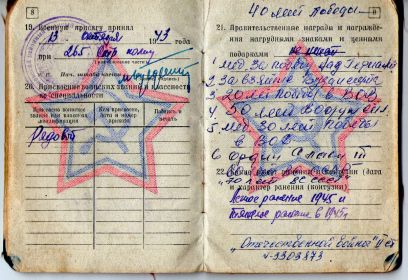 8
19. Военную присягу принял
13 октября 1943 года
при 265
Нач. штаба части
20. Присвоение воинских званий и классности
по специальности
Присвоено воинское
звание или класс,
квалификация
Кем присвоено,
дата и номер
приказа
Подпись и
печать
Рядовой
40 лет победы
9
21. Правительственные награды и награжде-
ния нагрудными знаками и ценными
подарками
1 мед. За победу над Германией
2 За взятие Будапешта
3 20 лет Победы в ВОВ
4 50 лет Вооруж
5 мед 30 лет Победы
в ВОВ
6 орден Славы III
22.
"70 лет ВС СССР"
и характер ранения (контузии)
Легкое ранение 1945 и
тяжелое ранение в 1945 г
"Отечественной войны" II ст